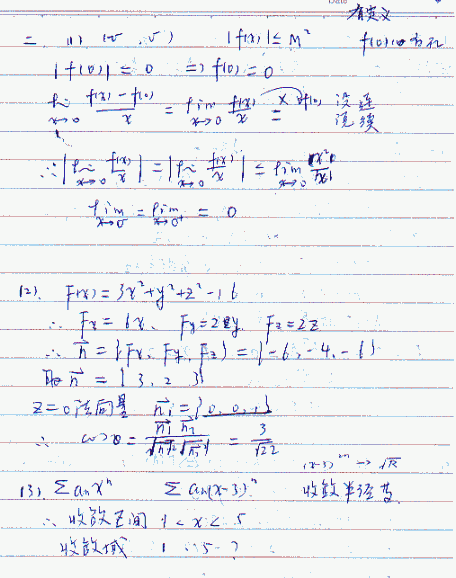 有定义
二 (1) |f(x)| ≤ M²
|f(0)| ≤ 0 => f(0)=0
lim x→0 f(x)-f(0)/x = lim x→0 f(x)/x = 没 连续
∴ |lim x→0 f(x)/x| = |lim x→0 f(x)/x| ≤ lim x→0
lim x→0⁻ = lim x→0⁺ = 0
(2). F(x) = 3x²+y²+z²-16
∴ Fx = 6x. Fy=2y. Fz=2z
∴ n = {Fx, Fy, Fz} = {-6, -4, -6}
取 n = {3, 2, 3}
z=0 法向量 n₁ = {0, 0, 1}
∴ cosθ = = 3/√22
(3) Σ aₙxⁿ Σ aₙ(x-3)ⁿ 收敛半径
∴ 收敛区间 1 < x < 5
收敛域 1 5 ?